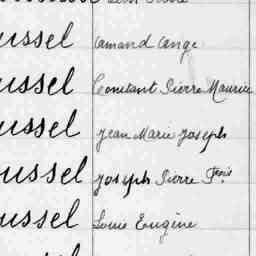 ussel Amand Ange
ussel Constant Pierre Maurice
ussel Jean Marie Joseph
ussel Joseph Pierre Frois
ussel Louis Eugène